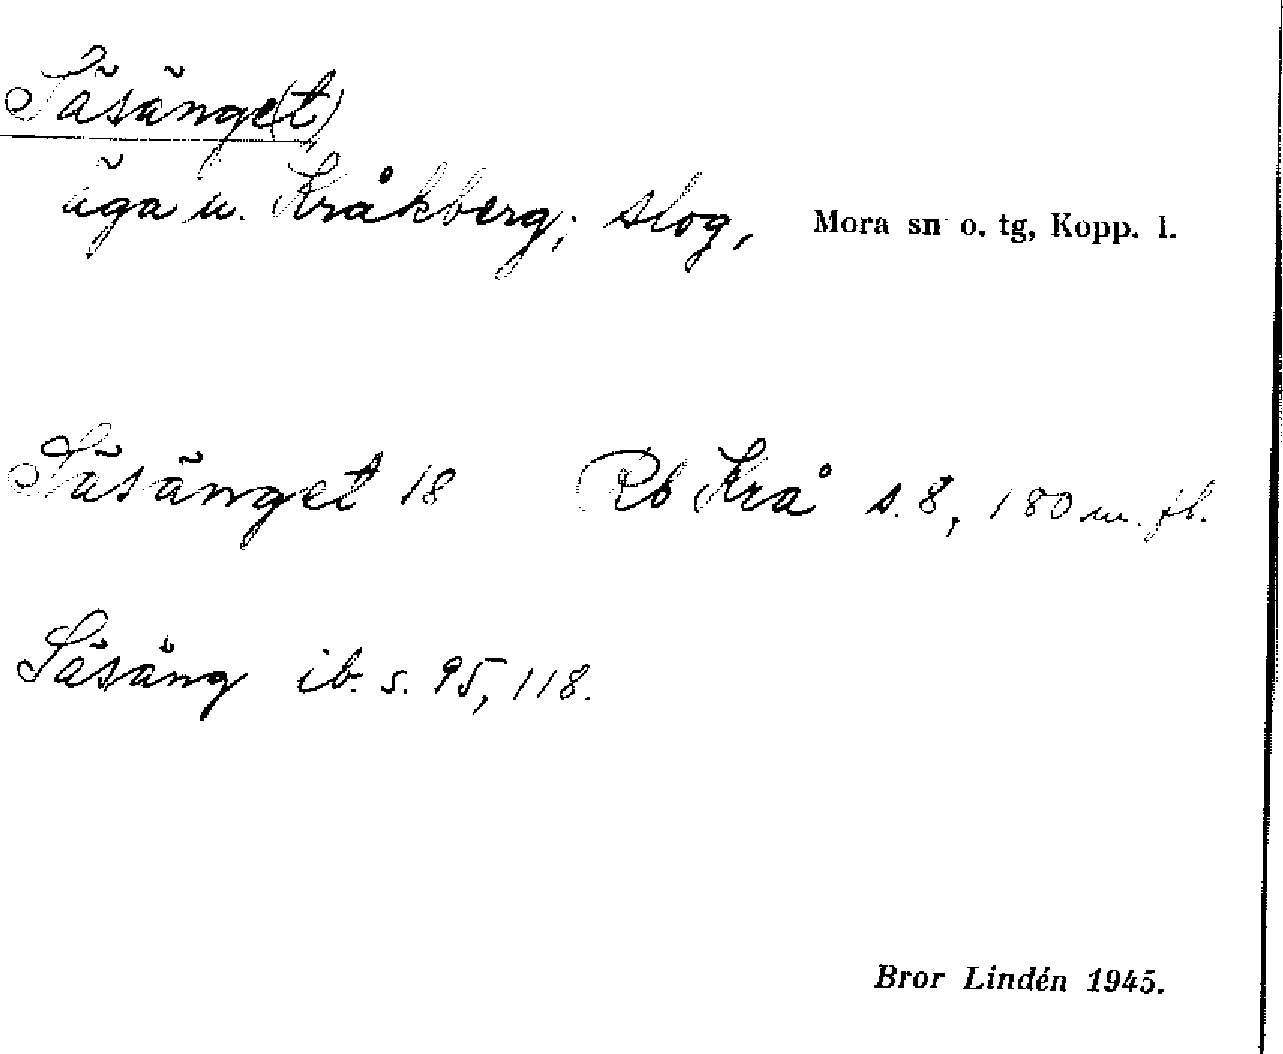 Säsänge(t)
äga u. Kråkberg; slog, Mora sn o. tg, Kopp. l.
Säsänget 18 Rb Krå s. 8, 180 m. fl.
Säsäng ib. s. 95, 118.
Bror Lindén 1945.